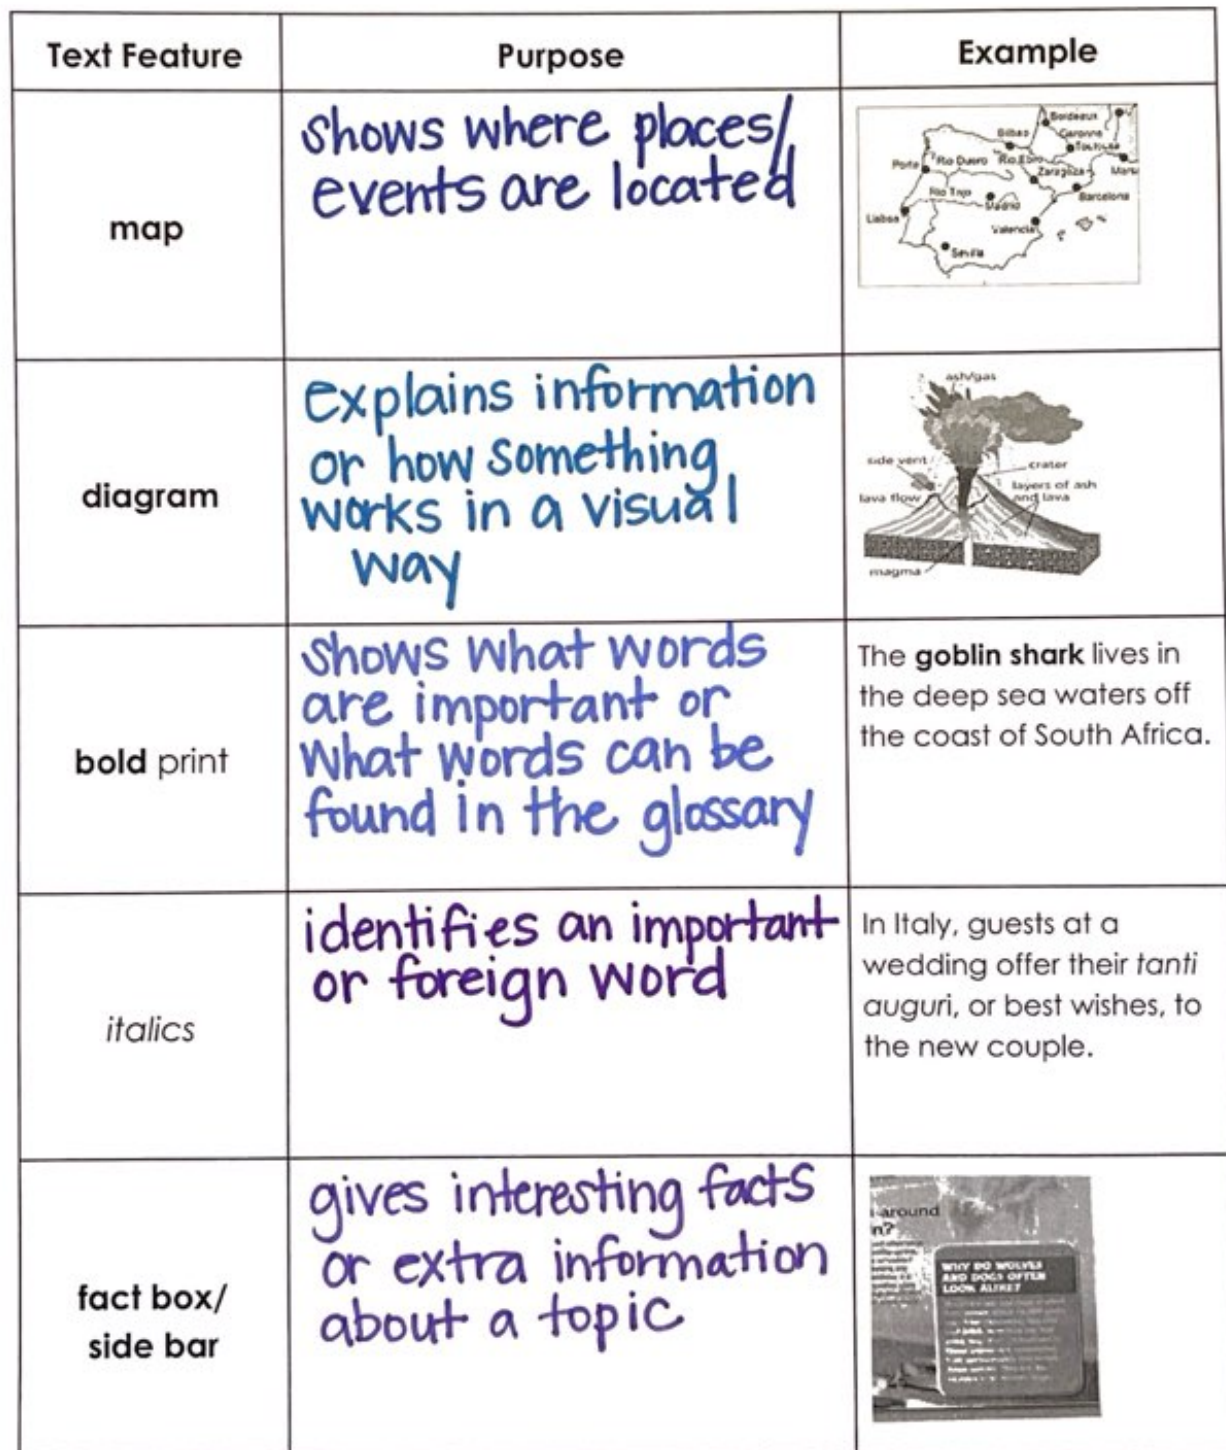 Text Feature
Purpose
Example
map
shows where places/
events are located
Bordeaux
Bilbao
Garonne
Toulouse
Porto
Rio Duero
Rio Ebro
Zaragoza
Barcelona
Rio Tajo
Madrid
Lisboa
Valencia
Sevilla
diagram
explains information
or how something
works in a visual
way
ash/gas
side vent
crater
lava flow
layers of ash
and lava
magma
bold print
shows what words
are important or
what words can be
found in the glossary
The goblin shark lives in
the deep sea waters off
the coast of South Africa.
italics
identifies an important
or foreign word
In Italy, guests at a
wedding offer their tanti
auguri, or best wishes, to
the new couple.
fact box/
side bar
gives interesting facts
or extra information
about a topic
around
n?
WHY DO WOLVES
AND DOGS OFTEN
LOOK ALIKE?